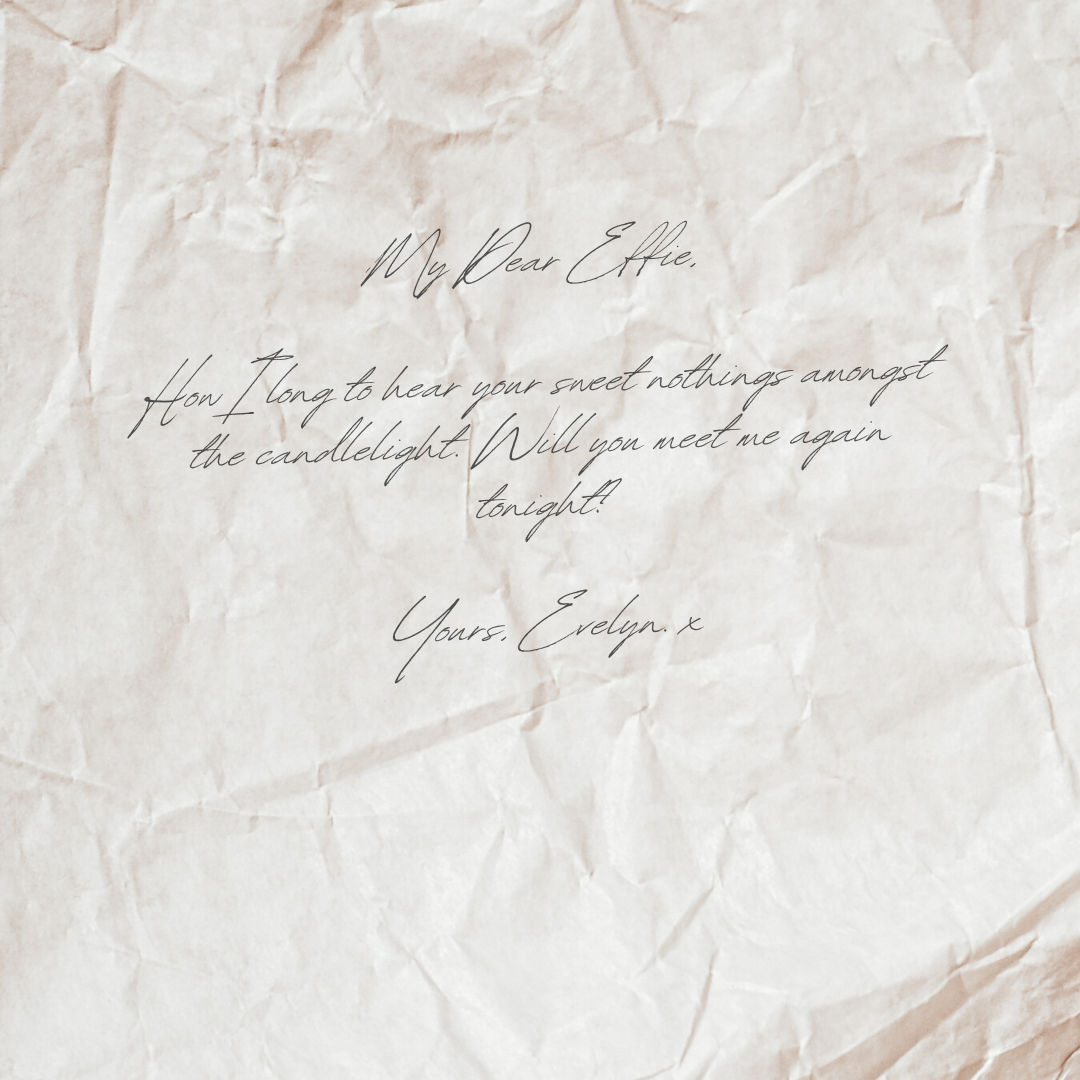 My Dear Effie,
How I long to hear your sweet nothings amongst
the candlelight. Will you meet me again
tonight?
Yours, Evelyn. x